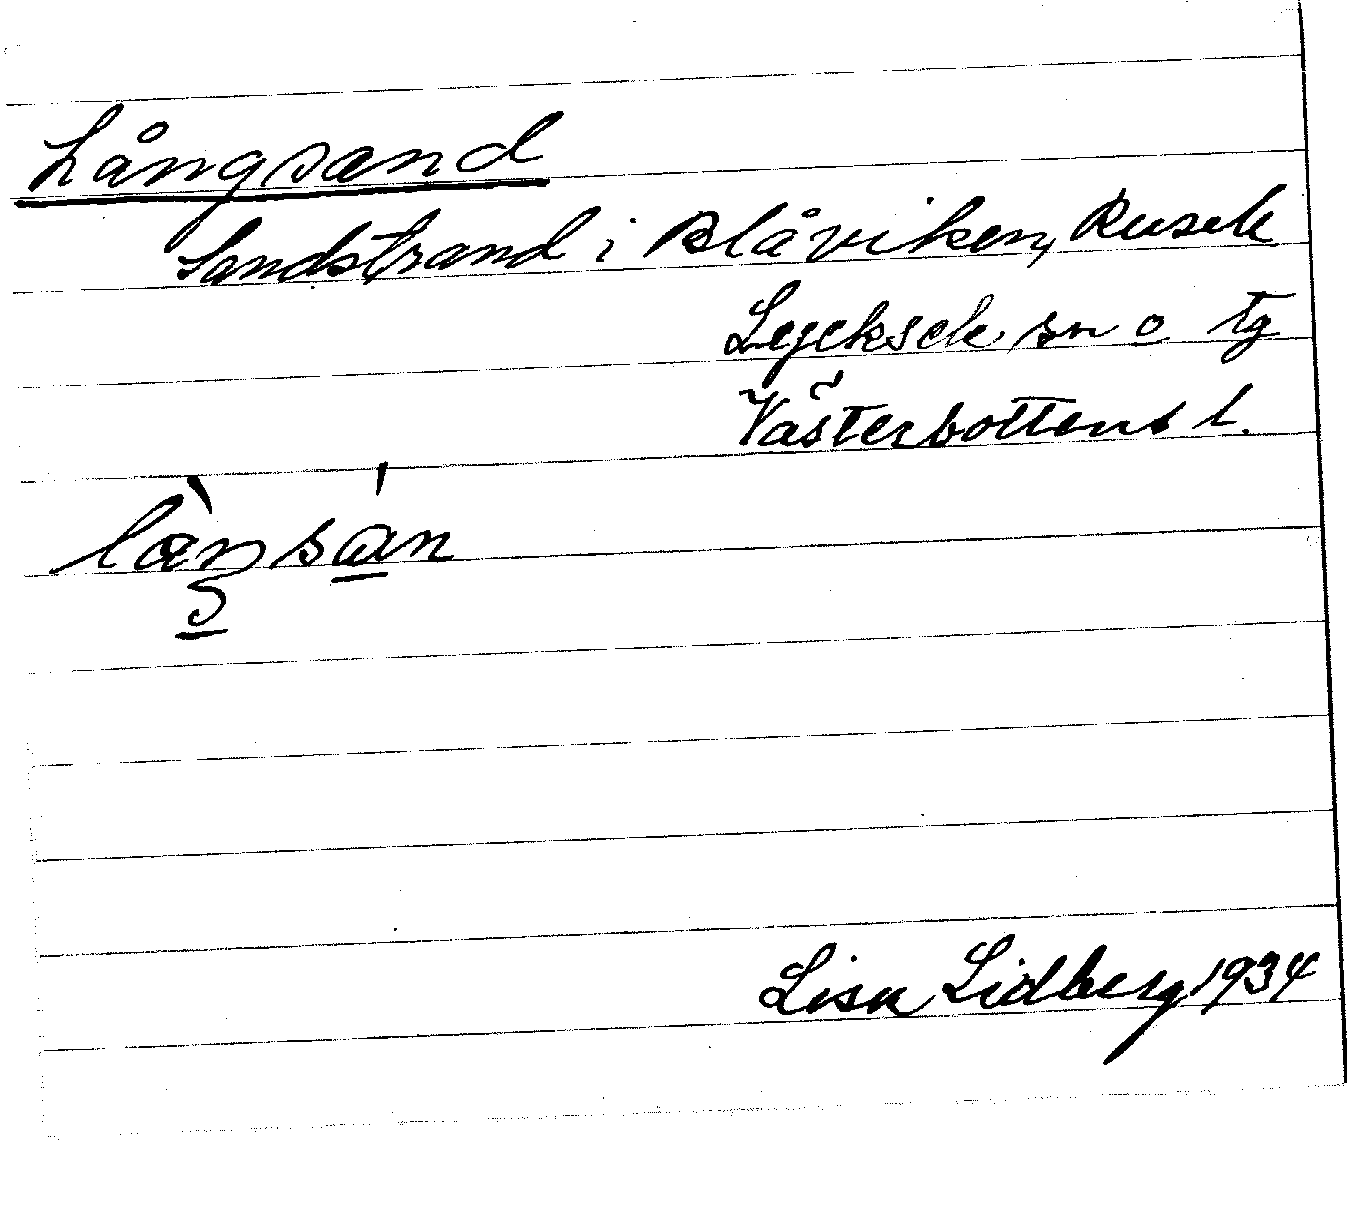 Långsand
Sandstrand i Blåviken, Rusele
Lycksele sn o tg
Västerbottens l.
Lisa Lidberg 1934